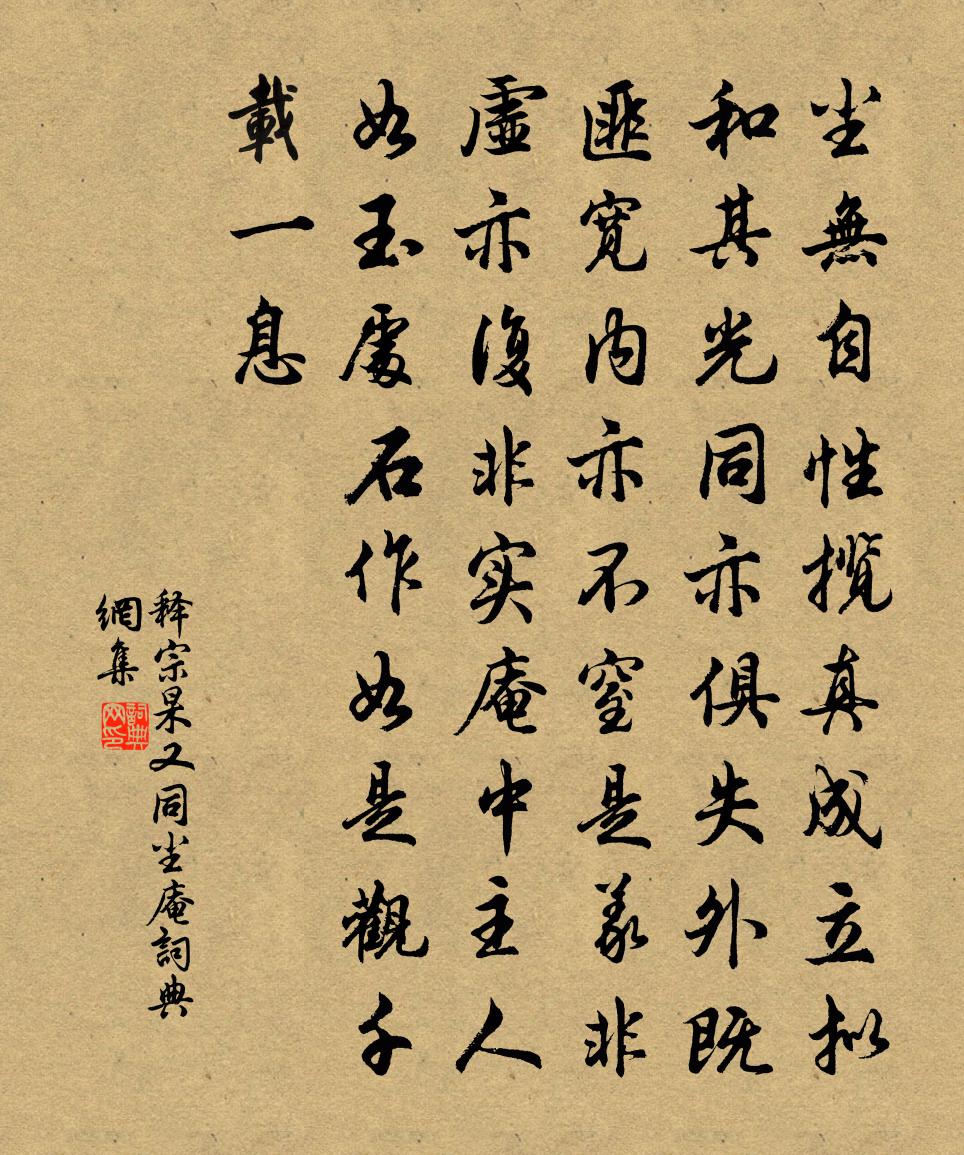 尘無自性揽真成立拟
和其光同亦俱失外既
匪宽内亦不窒是義非
虚亦復非实庵中主人
如玉處石作如是觀千
載一息
释宗杲又同尘庵詞典
網集
詞典
网印